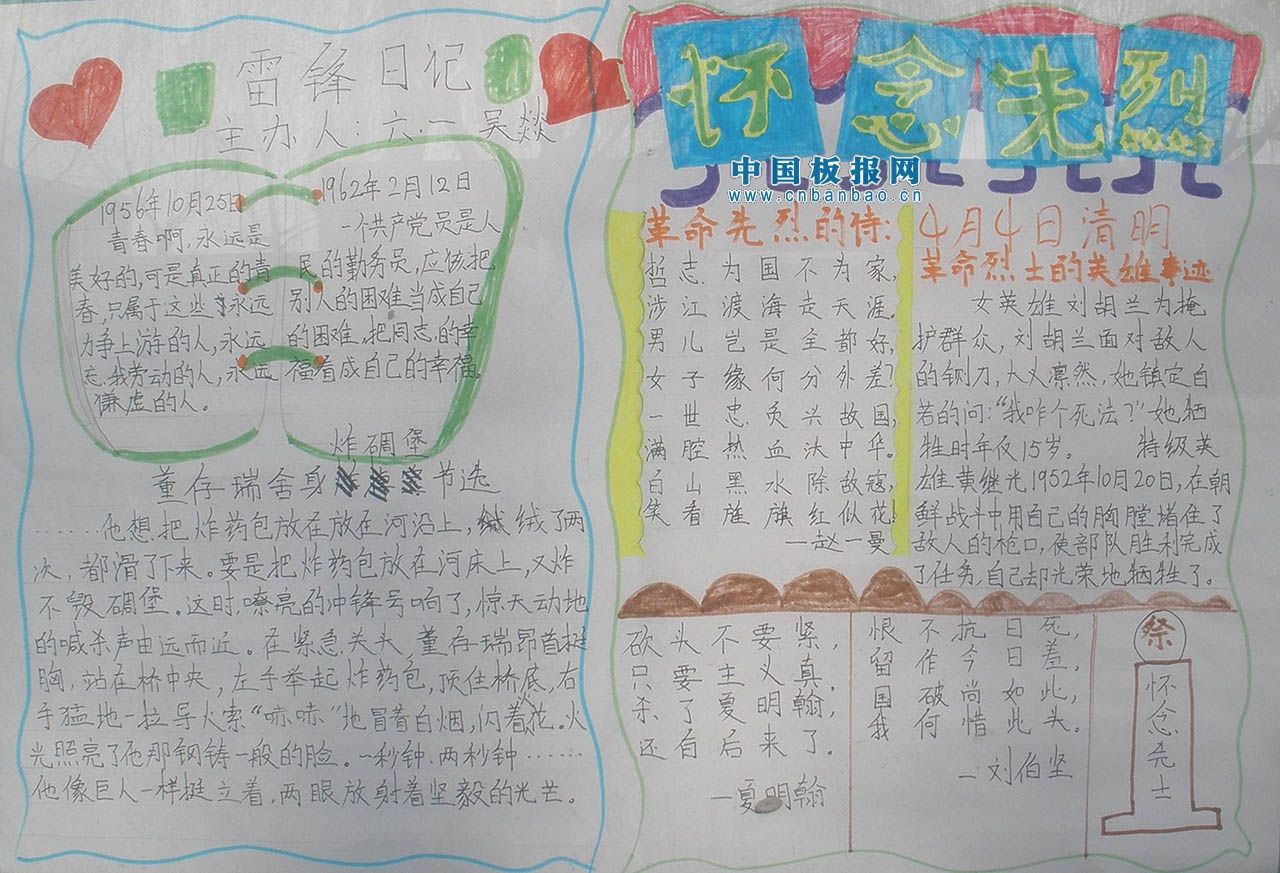 雷锋日记
主办人:六.一 吴燚
1956年10月25日
青春啊,永远是
美好的,可是真正的青
春,只属于这些永远
力争上游的人,永远
忘我劳动的人,永远
谦虚的人。
1962年2月12日
一个共产党员是人
民的勤务员,应该把
别人的困难当成自己
的困难,把同志的幸
福看成自己的幸福。
炸碉堡
董存瑞舍身 节选
……他想把炸药包放在放在河沿上,绒了两
次,都滑了下来。要是把炸药包放在河床上,又炸
不毁碉堡。这时,嘹亮的冲锋号响了,惊天动地
的喊杀声由远而近。在紧急关头,董存瑞昂首挺
胸,站在桥中央,左手举起炸药包,顶住桥底,右
手猛地一拉导火索“哧哧”地冒着白烟,闪着火花。火
光照亮了他那钢铸一般的脸。一秒钟.两秒钟……
他像巨人一样挺立着,两眼放射着坚毅的光芒。
怀念先烈
中国板报网
www.cnbanbao.cn
革命先烈的侍:
哲志为国不为家,
涉江渡海走天涯。
男儿岂是全都好,
女子缘何分外差?
一世忠负兴故国,
满腔热血沃中华。
白山黑水除敌寇,
笑看旌旗红似花!
—赵一曼
4月4日清明
革命烈士的英雄事迹
女英雄刘胡兰为掩
护群众,刘胡兰面对敌人
的铡刀,大义凛然,她镇定自
若的问:“我咋个死法?”她牺
牲时年仅15岁。 特级英
雄黄继光1952年10月20日,在朝
鲜战斗中用自己的胸膛堵住了
敌人的枪口,使部队胜利完成
了任务,自己却光荣地牺牲了。
砍头不要紧,
只要主义真,
杀了夏明翰,
还自后来了。
—夏明翰
恨不抗日死,
留作今日羞,
国破尚如此,
我何惜此头。
—刘伯坚
祭
怀念先士